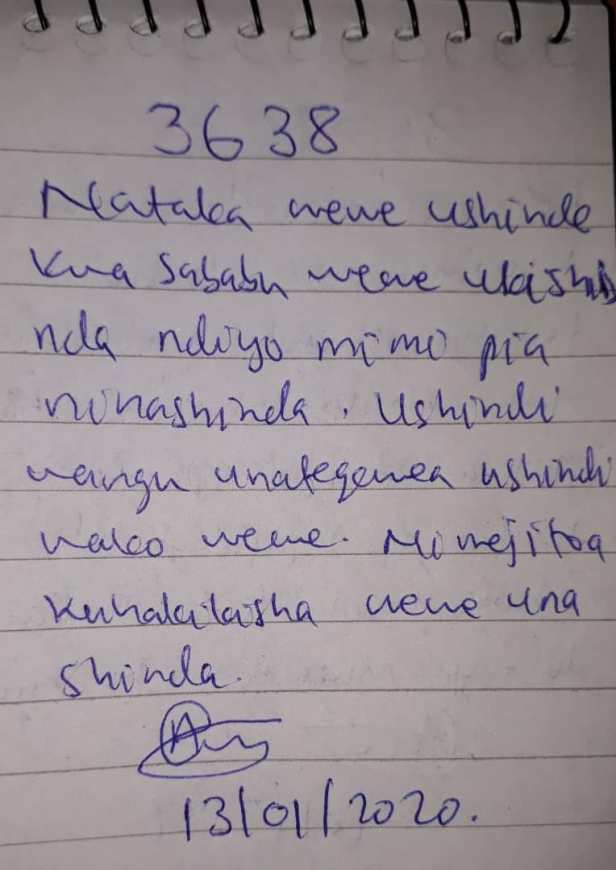 3638
Nataka wewe ushinde
Kwa sababu wewe ukishi
nda ndiyo mimi pia
ninashinda. Ushindi
wangu unategemea ushindi
wako wewe. Nimejitoa
kuhakikisha wewe una
shinda.
13/01/2020.